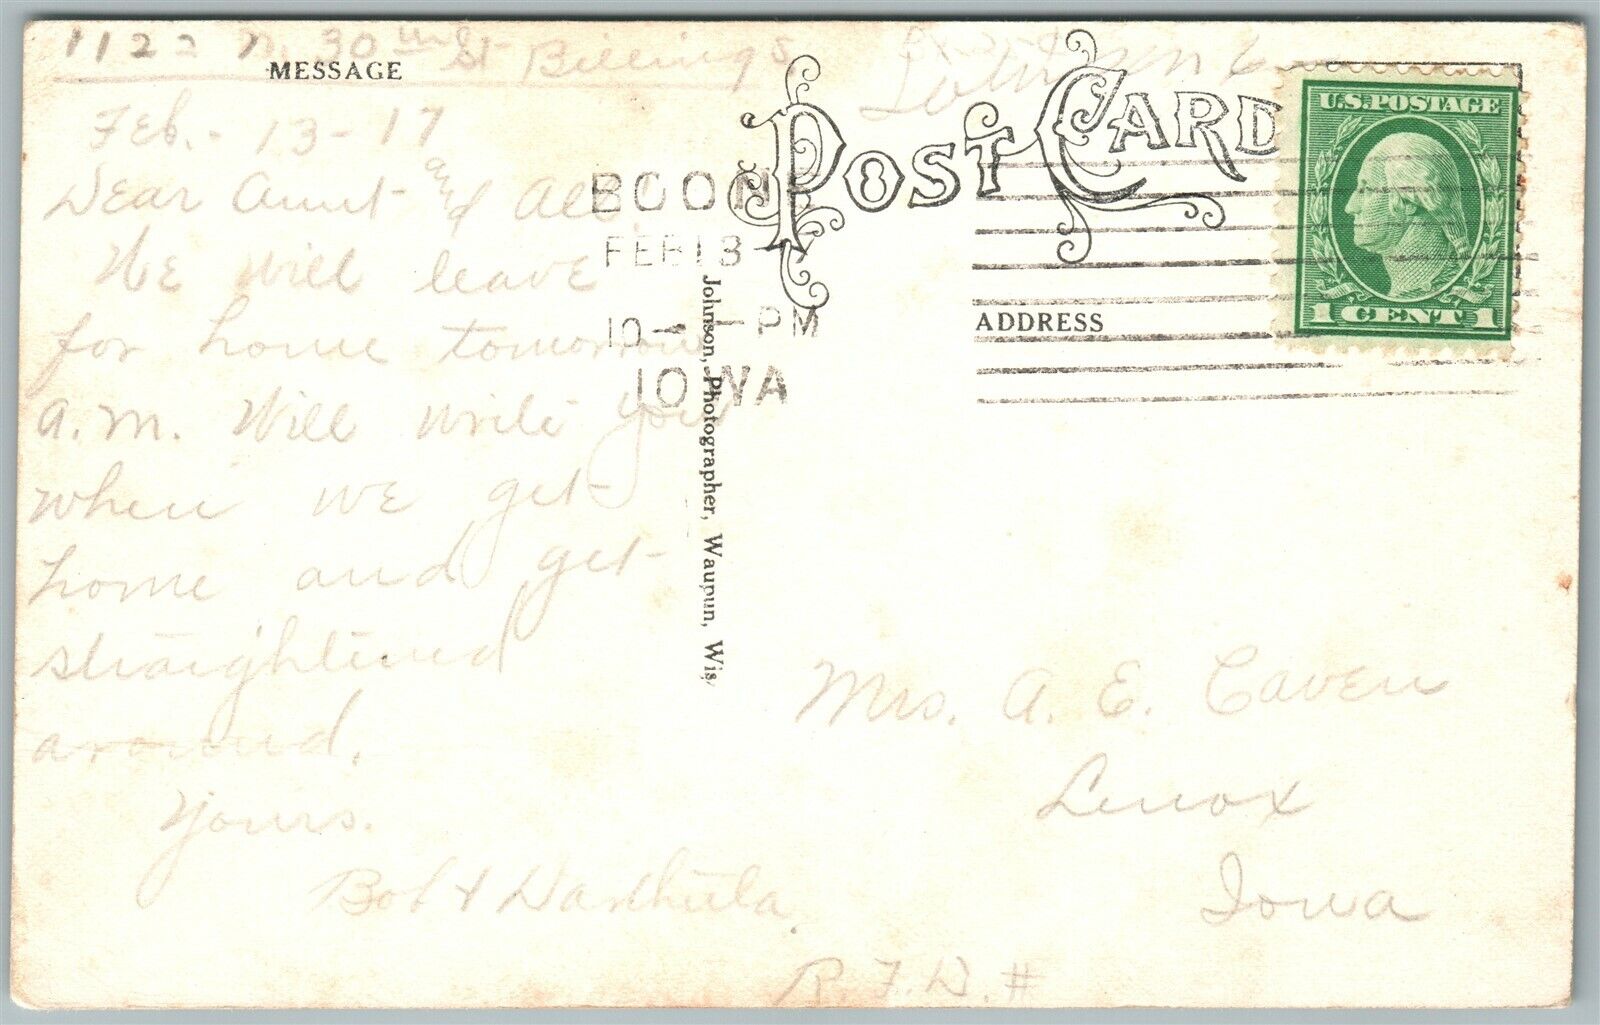 1122 N. 30th St Billings
MESSAGE
Feb. - 13 - 17
Dear Aunt and All.
We will leave
for home tomorrow
a.m. Will write you
when we get
home and get
straightened
around.
Yours.
Bob &
POST CARD
BOON
FEB 13
10 - PM
IOWA
Johnson, Photographer, Waupun, Wis.
ADDRESS
U.S. POSTAGE
1 CENT 1
Mrs. A. E. Caven
Lenox
Iowa
R. F. D. #